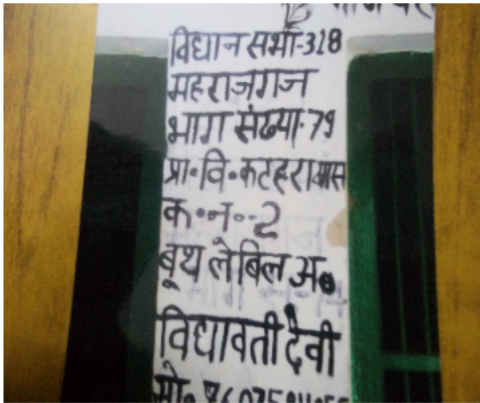 विधान सभा-318
महराजगंज
भाग संख्या-79
प्रा॰वि॰कटहरा खास
क॰न॰-2
बूथ लेबिल अ॰
विद्यावती देवी
मो॰